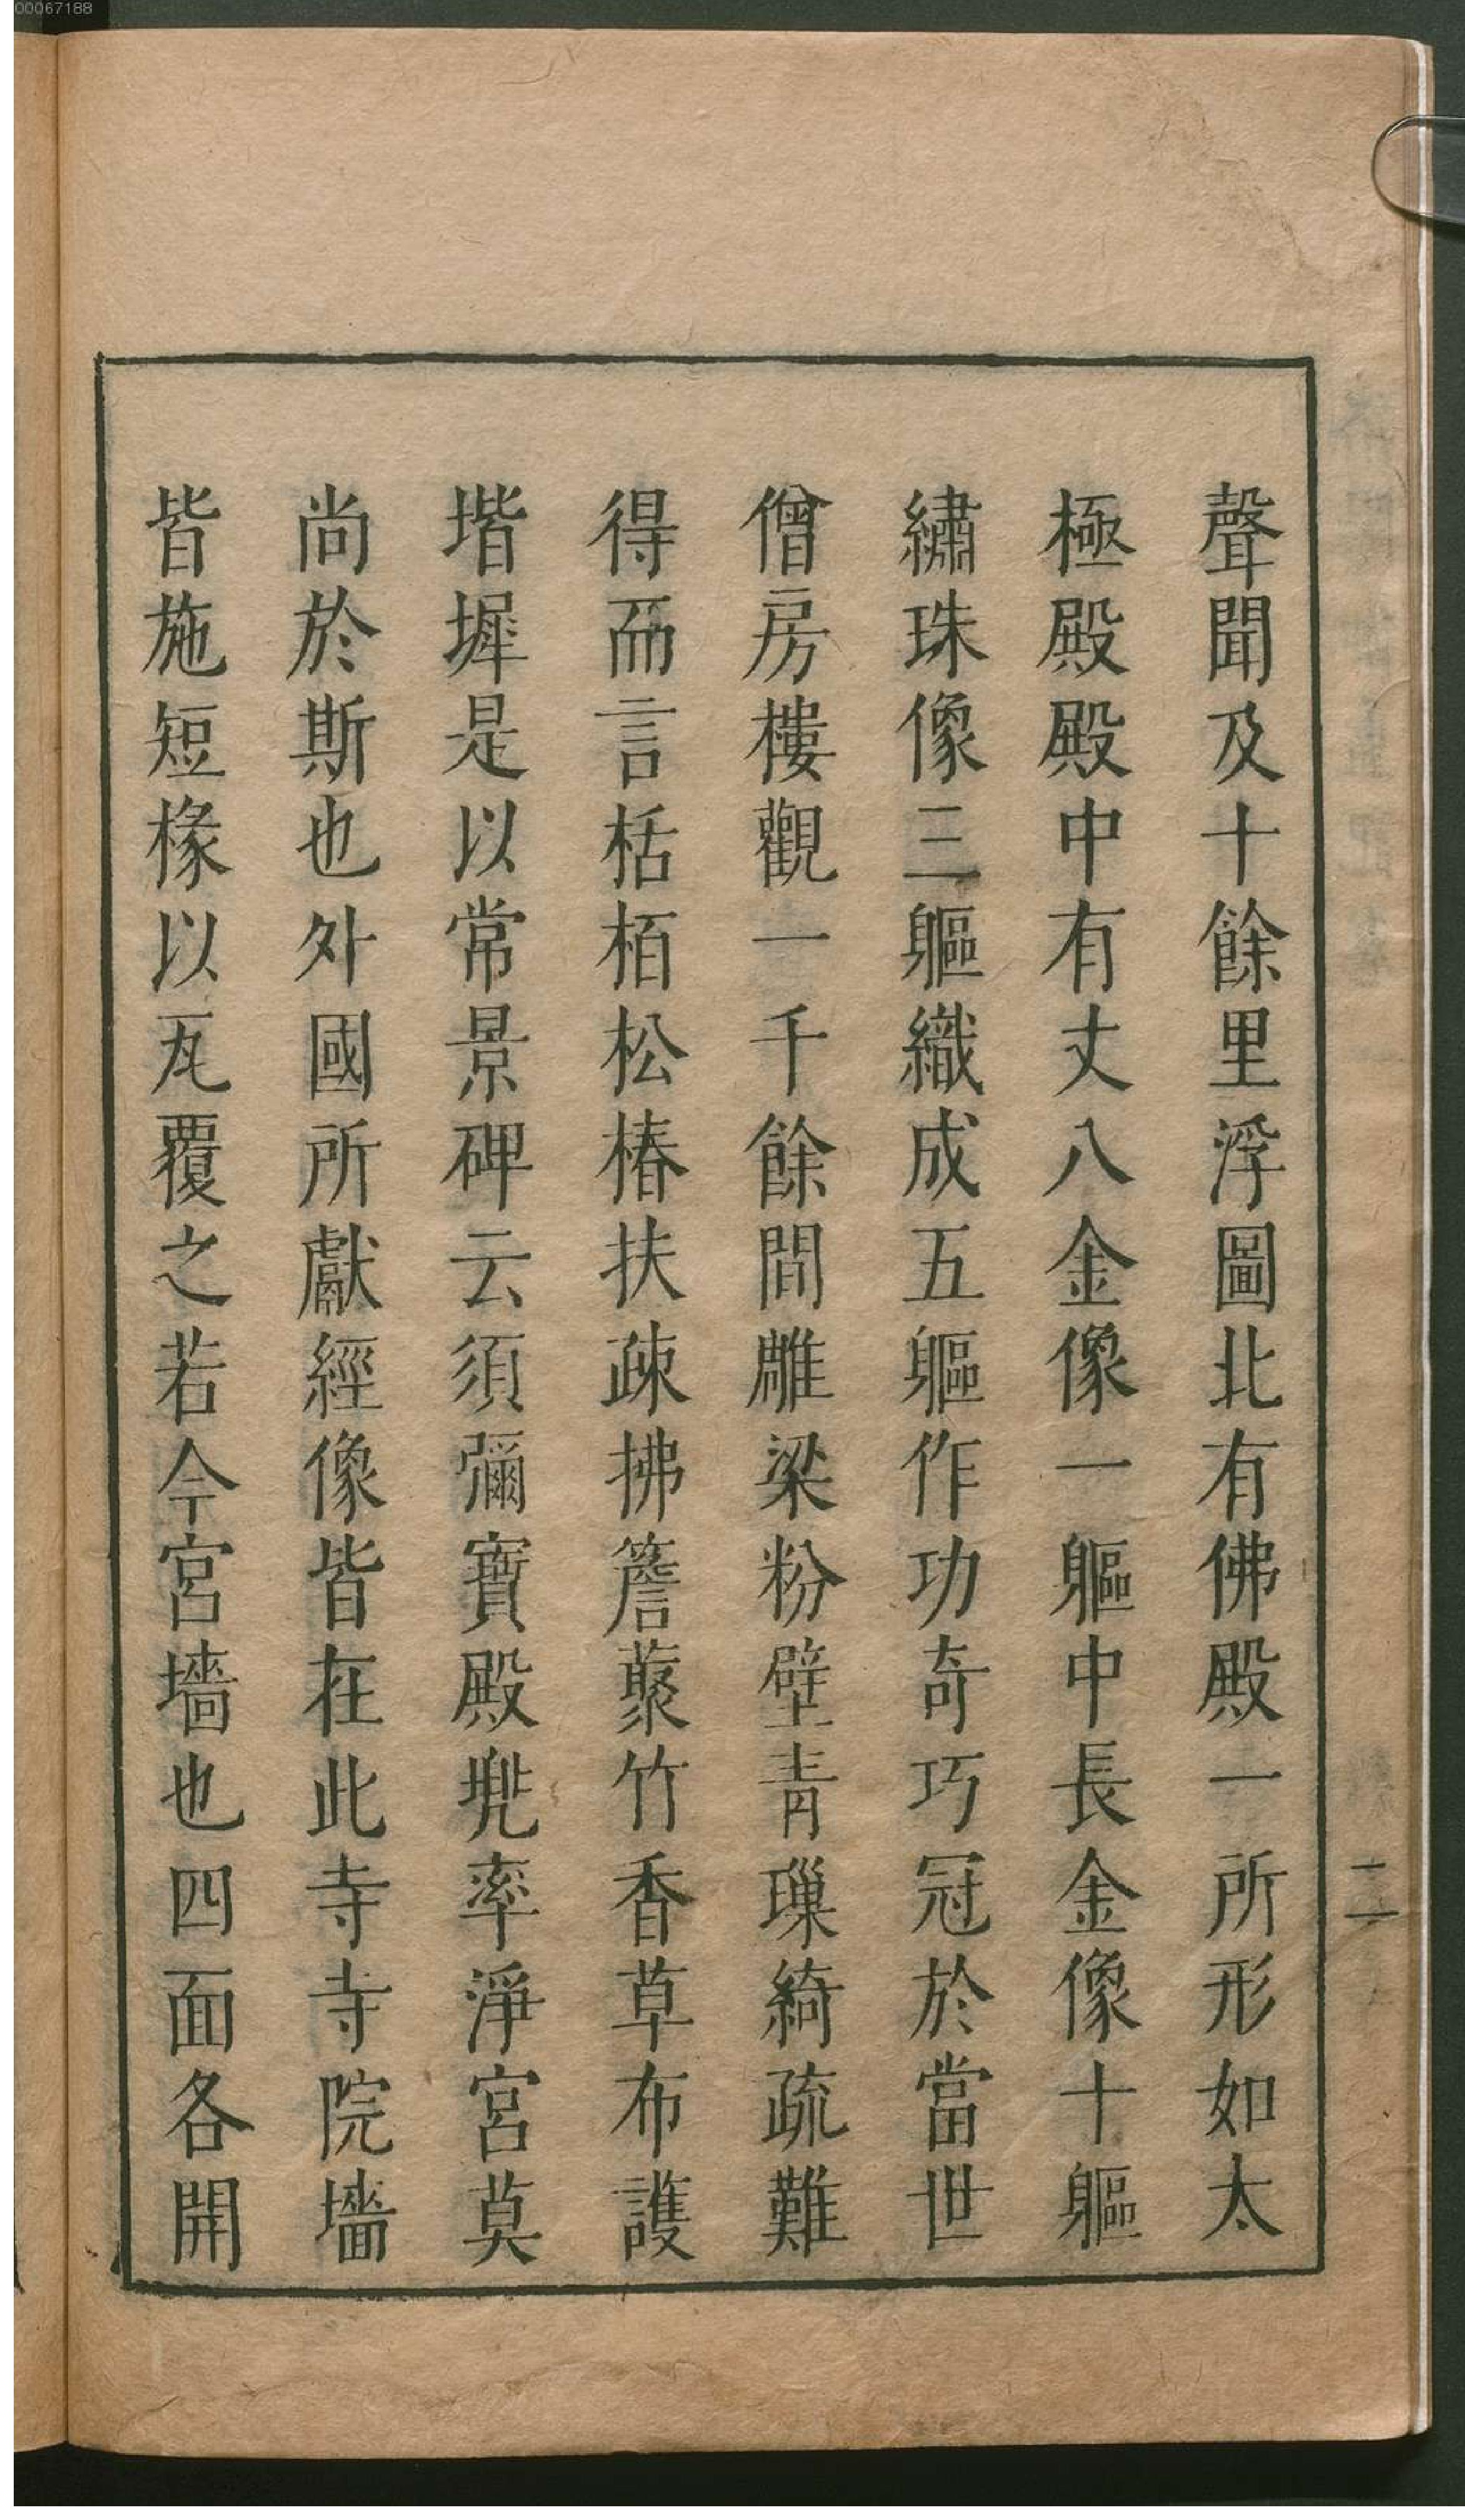 00067188
聲聞及十餘里浮圖北有佛殿一所形如太
極殿殿中有丈八金像一軀中長金像十軀
繡珠像三軀織成五軀作功奇巧冠於當世
僧房樓觀一千餘間雕梁粉壁青璅綺疏難
得而言栝栢松椿扶疎拂簷藂竹香草布護
堦墀是以常景碑云須彌寶殿兠率淨宮莫
尚於斯也外國所獻經像皆在此寺寺院墻
皆施短椽以瓦覆之若今宮墻也四面各開
二